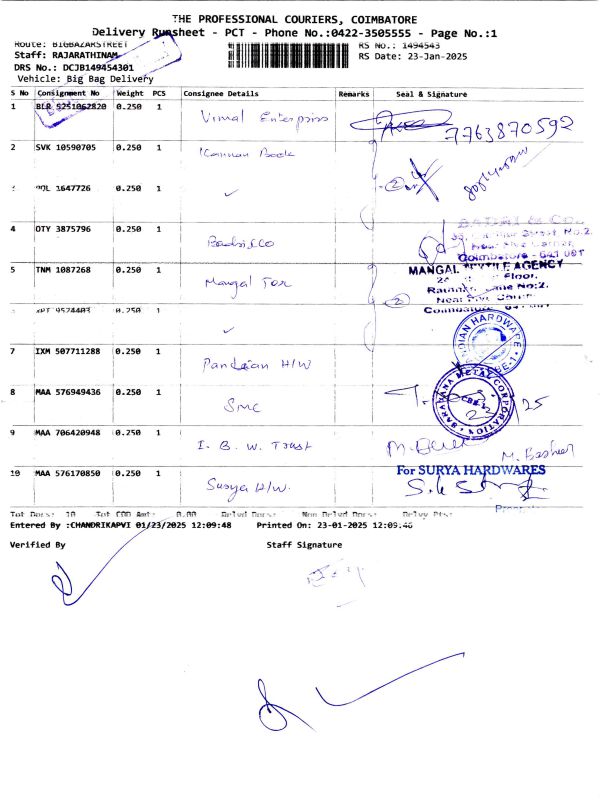 THE PROFESSIONAL COURIERS, COIMBATORE
Delivery Runsheet - PCT - Phone No.:0422-3505555 - Page No.:1
Route: BIGBAZARSTREET
RS No.: 1494543
Staff: RAJARATHINAM
RS Date: 23-Jan-2025
DRS No.: DCJB149454301
Vehicle: Big Bag Delivery
S No Consignment No Weight PCS Consignee Details Remarks Seal & Signature
1 BLR 9251062820 0.250 1 Vimal Enterpriss 7763870592
2 SVK 10590705 0.250 1 Kannan Book
1647726 0.250 1 ✓ 2
4 OTY 3875796 0.250 1
No.2.
Coimbatore - 641 001
5 TNM 1087268 0.250 1 Mangal Tex
MANGAL TEXTILE AGENCY
Floor,
Lane No:2.
2
9524403 0.250 1 ✓
HARDWARE
7 IXM 507711288 0.250 1 Pandian H/W
8 MAA 576949436 0.250 1 SMC
METAL CORPORATION
CBE-1
25
9 MAA 706420948 0.250 1 I. B. W. Trast
M. Basheer
10 MAA 576170850 0.250 1 Surya H/W.
For SURYA HARDWARES
Tot Docs: 10 Tot COD Amt: 0.00 Delvd Docs: Non Delvd Docs: Delvy Pts:
Entered By :CHANDRIKAPVI 01/23/2025 12:09:48 Printed On: 23-01-2025 12:09:46
Verified By Staff Signature